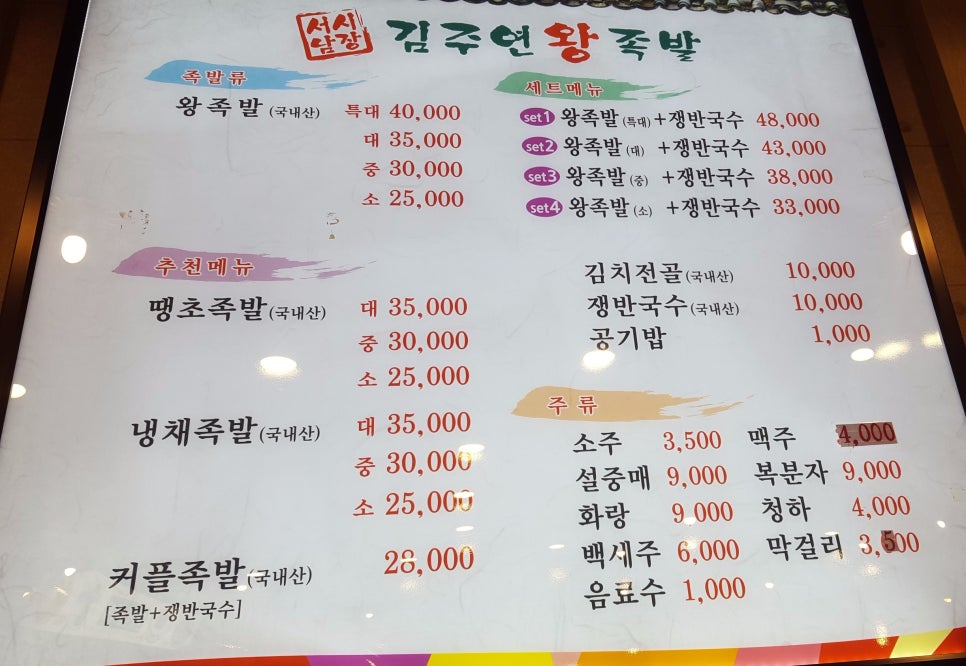 서남시장 김주연왕족발
족발류
왕족발 (국내산) 특대 40,000
대 35,000
중 30,000
소 25,000
추천메뉴
땡초족발(국내산) 대 35,000
중 30,000
소 25,000
냉채족발(국내산) 대 35,000
중 30,000
소 25,000
커플족발(국내산) 28,000
[족발+쟁반국수]
세트메뉴
set1 왕족발(특대)+쟁반국수 48,000
set2 왕족발(대) +쟁반국수 43,000
set3 왕족발(중) +쟁반국수 38,000
set4 왕족발(소) +쟁반국수 33,000
김치전골(국내산) 10,000
쟁반국수(국내산) 10,000
공기밥 1,000
주류
소주 3,500 맥주 4,000
설중매 9,000 복분자 9,000
화랑 9,000 청하 4,000
백세주 6,000 막걸리 3,500
음료수 1,000